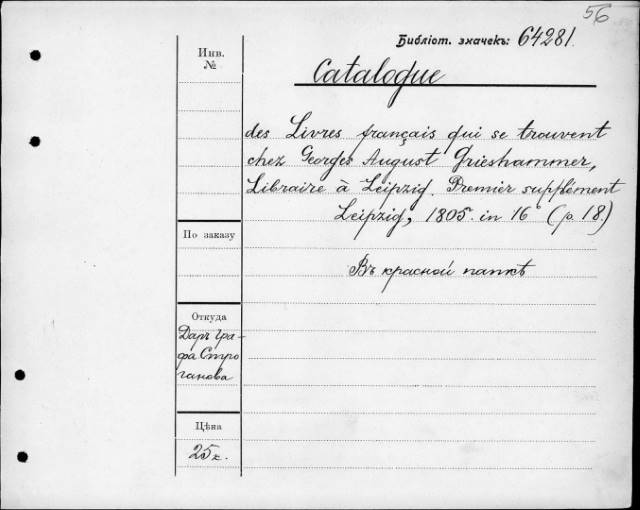 56
Библіот. значекъ: 64281.
Инв.
№
Catalogue
des Livres français qui se trouvent
chez Georges August Grieshammer,
Libraire à Leipzig. Premier supplément
Leipzig, 1805. in 16° (p. 18)
По заказу
Въ красной папкѣ
Откуда
Даръ Гра-
фа Стро
ганова
Цѣна
25к.